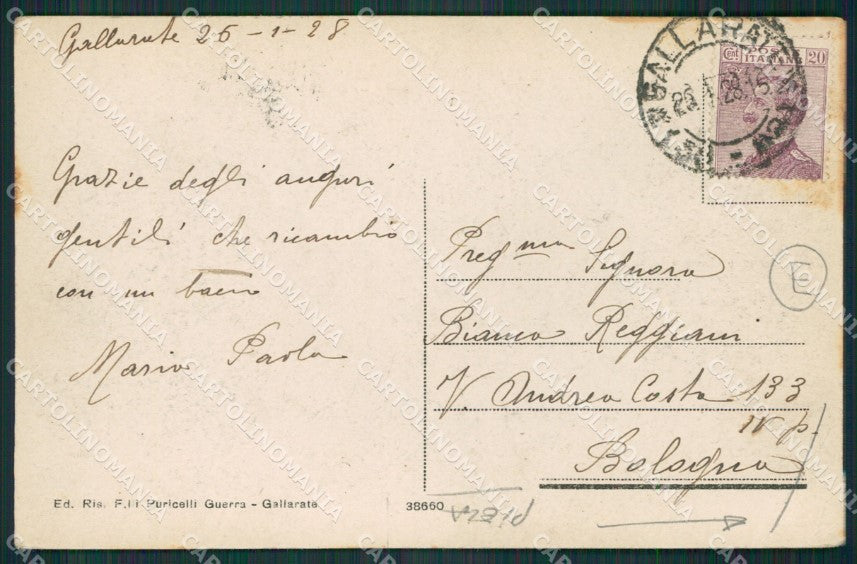 Gallarate 25-1-28
Grazie degli auguri
gentili che ricambio
con un bacio
Maria Paola
Preg ma Signora
Bianca Reggiani
V. Andrea Costa 133
IV p.
Bologna
Cent 20
ITALIANE
GALLARATE
Ed. Ris. F.lli Puricelli Guerra - Gallarate
38660
CARTOLINOMANIA